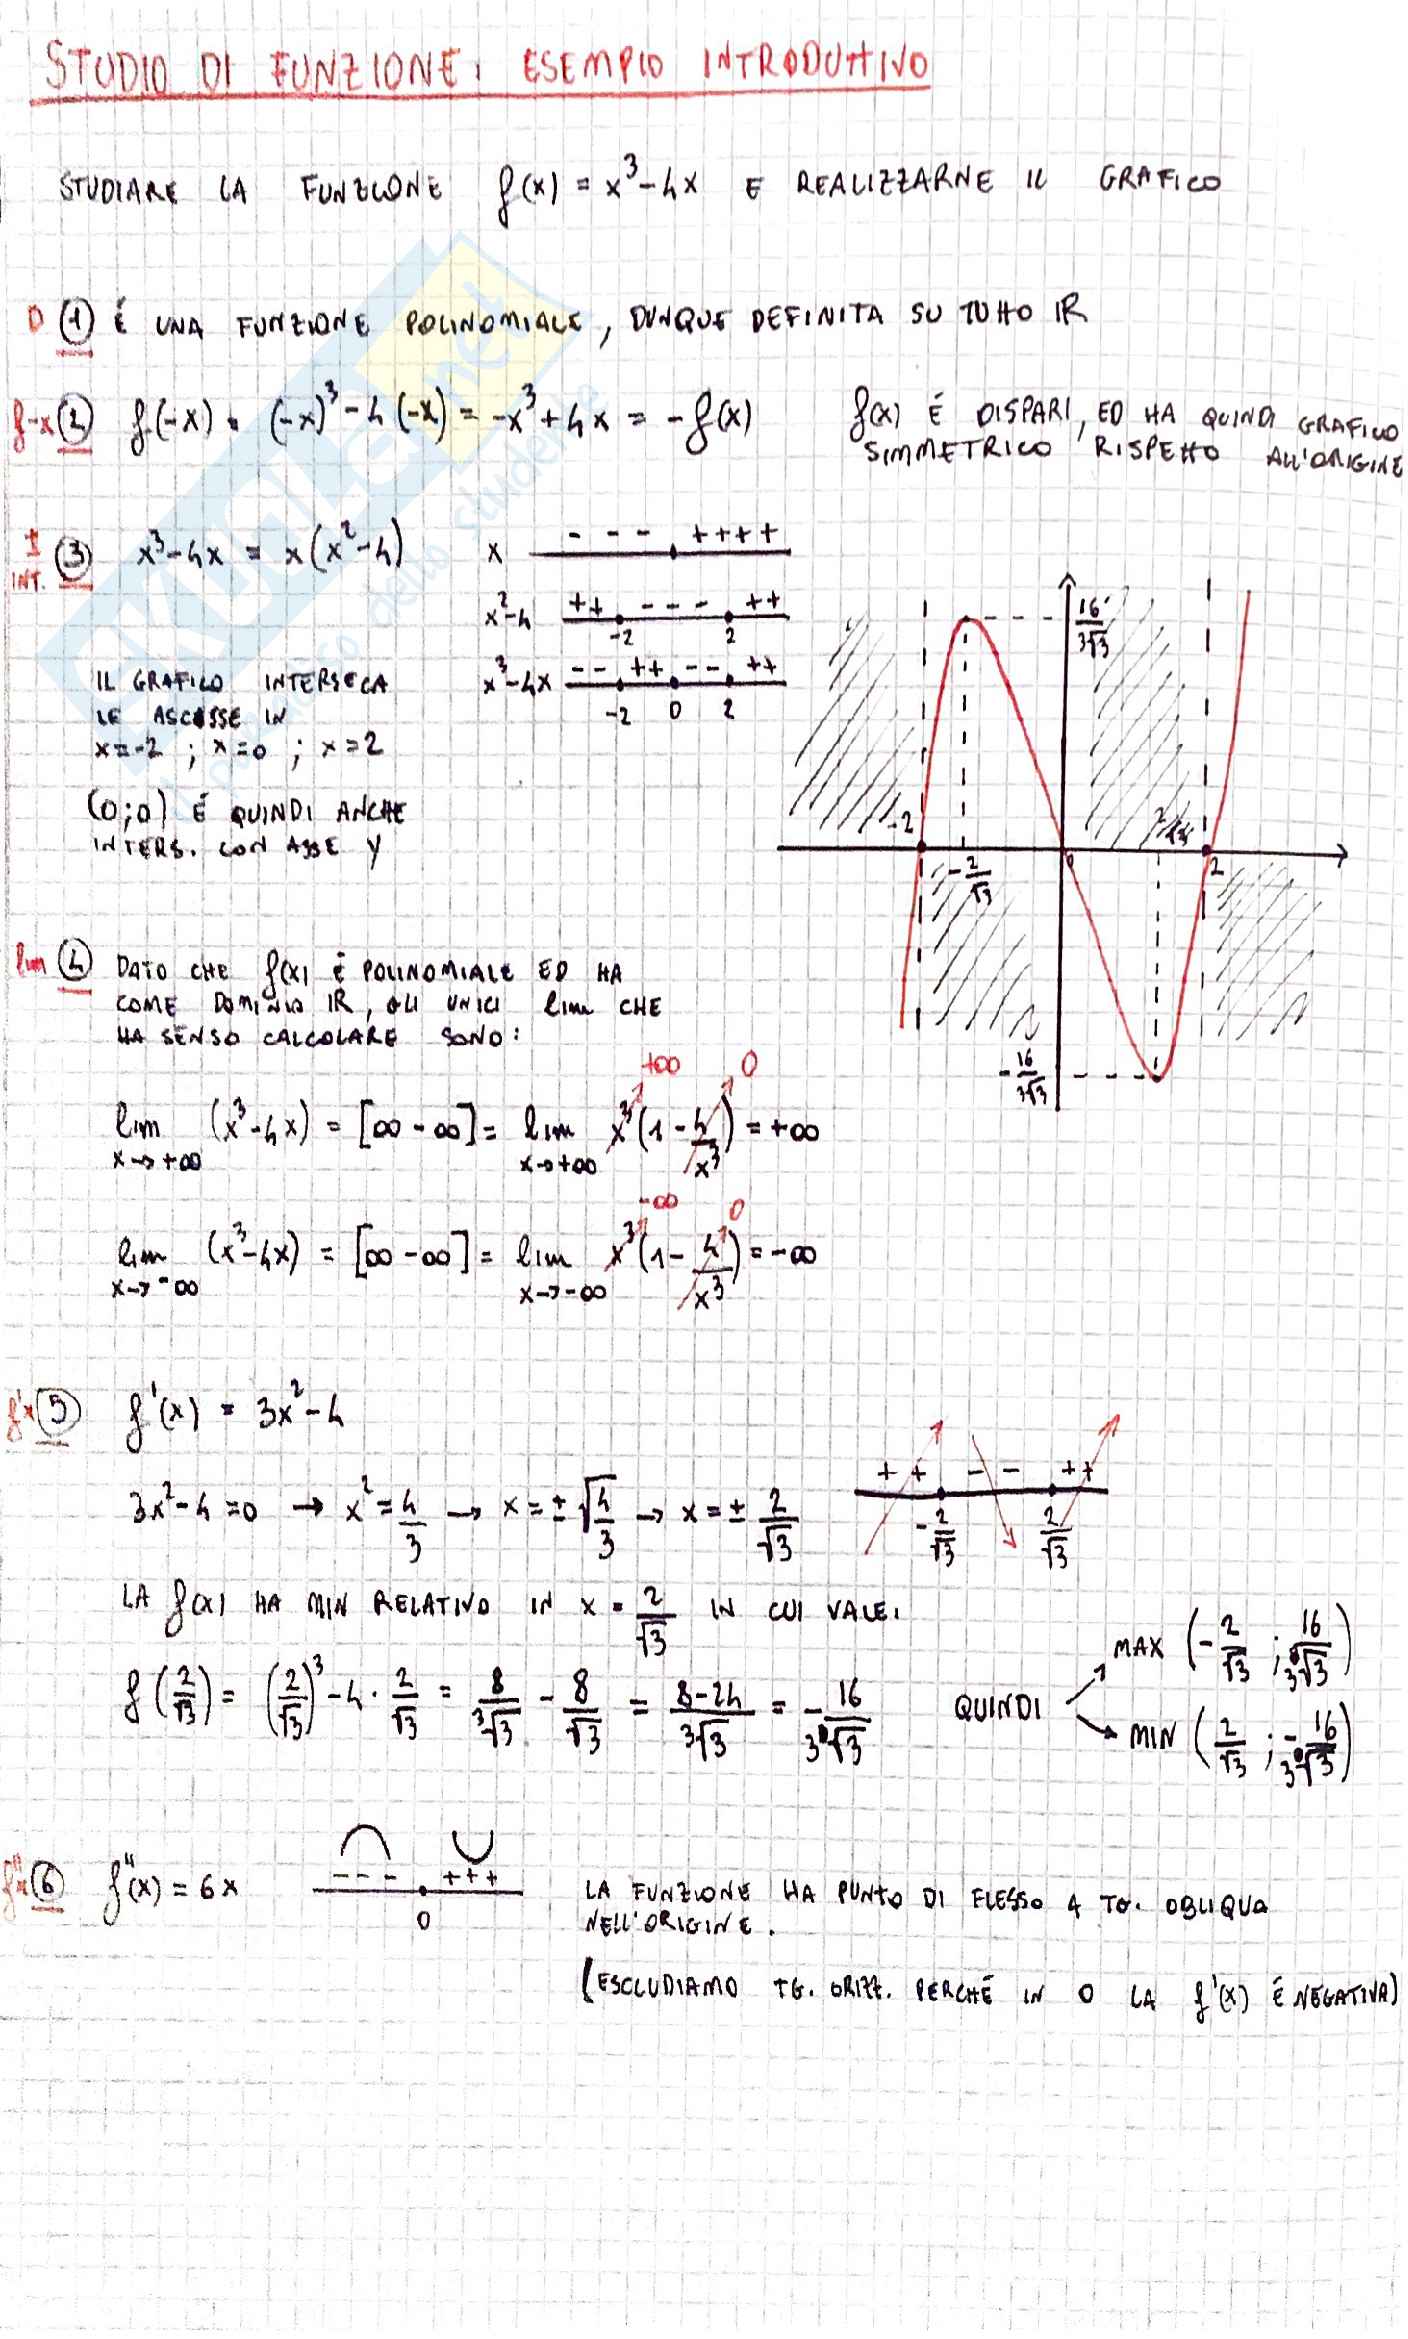 STUDIO DI FUNZIONE: ESEMPIO INTRODUTTIVO
STUDIARE LA FUNZIONE f(x) = x³-4x E REALIZZARNE IL GRAFICO
D (1) É UNA FUNZIONE POLINOMIALE, DUNQUE DEFINITA SU TUTTO IR
f-x (2) f(-x) = (-x)³-4(-x) = -x³+4x = -f(x) f(x) É DISPARI, ED HA QUINDI GRAFICO
SIMMETRICO RISPETTO ALL'ORIGINE
± INT. (3) x³-4x = x(x²-4)
x - - - ++++
x²-4 ++ - - - ++
-2 2
x³-4x -- ++ -- ++
-2 0 2
IL GRAFICO INTERSECA
LE ASCISSE IN
x=-2 ; x=0 ; x=2
(0;0) É QUINDI ANCHE
INTERS. CON ASSE Y
16/3√3
-2
-2/√3
0
2
-16/3√3
lim (4) DATO CHE f(x) É POLINOMIALE ED HA
COME DOMINIO IR, GLI UNICI lim CHE
HA SENSO CALCOLARE SONO:
+∞ 0
lim x→+∞ (x³-4x) = [∞-∞] = lim x→+∞ x³(1-4/x³) = +∞
-∞ 0
lim x→-∞ (x³-4x) = [∞-∞] = lim x→-∞ x³(1-4/x³) = -∞
f'x (5) f'(x) = 3x²-4
3x²-4=0 → x²=4/3 → x=±√4/3 → x=±2/√3
++ -- ++
-2/√3 2/√3
LA f(x) HA MIN RELATIVO IN x=2/√3 IN CUI VALE:
f(2/√3) = (2/√3)³-4·2/√3 = 8/3√3 - 8/√3 = 8-24/3√3 = -16/3√3
QUINDI
MAX (-2/√3 ; 16/3√3)
MIN (2/√3 ; -16/3√3)
f''x (6) f''(x) = 6x
--- +++
0
LA FUNZIONE HA PUNTO DI FLESSO A TG. OBLIQUA
NELL'ORIGINE.
(ESCLUDIAMO TG. ORIZZ. PERCHÉ IN 0 LA f'(x) É NEGATIVA)